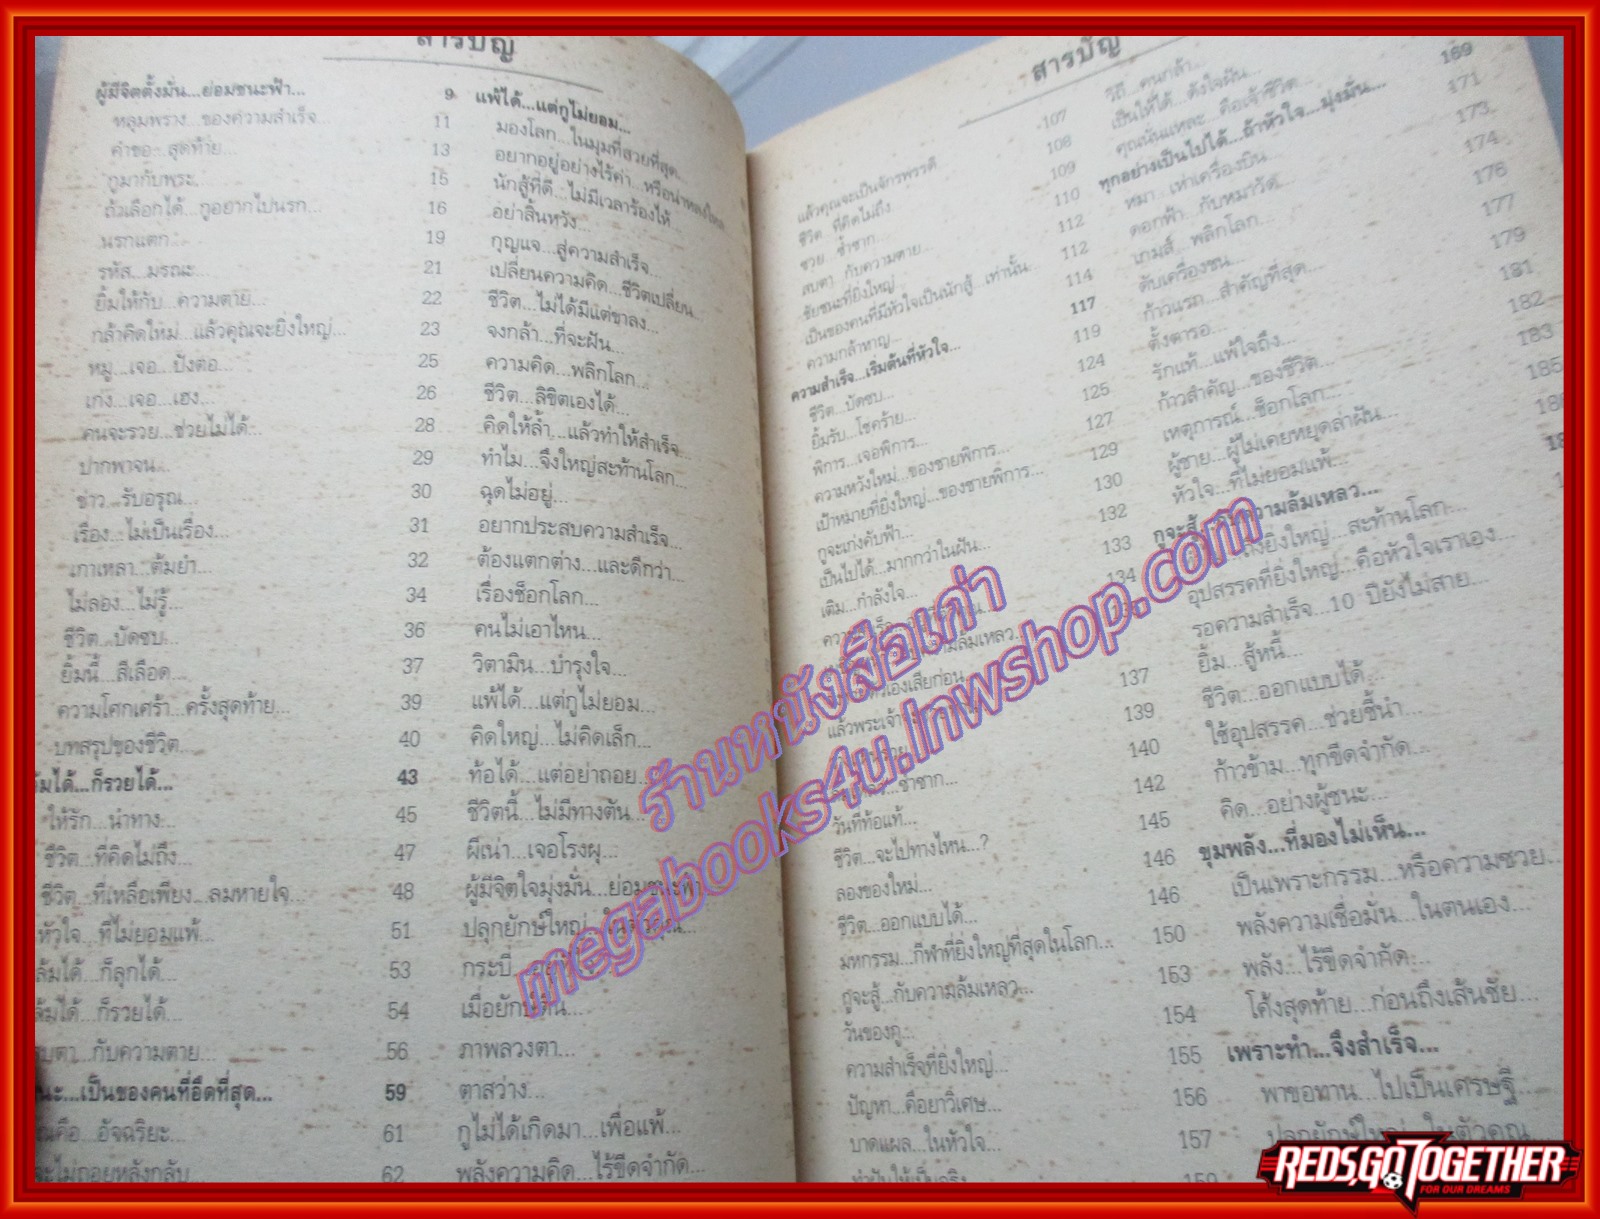 สารบัญ
ผู้มีจิตตั้งมั่น...ย่อมชนะฟ้า... 9
หลุมพราง...ของความสำเร็จ... 11
คำขอ...สุดท้าย... 13
กูมากับพระ... 15
ถ้าเลือกได้...กูอยากไปนรก... 16
นรกแตก... 19
รหัส...มรณะ... 21
ยิ้มให้กับ...ความตาย... 22
กล้าคิดใหม่...แล้วคุณจะยิ่งใหญ่... 23
หมู...เจอ...ปังตอ... 25
เก่ง...เจอ...เฮง... 26
คนจะรวย...ช่วยไม่ได้... 28
ปากพาจน... 29
ข่าว...รับอรุณ... 30
เรื่อง...ไม่เป็นเรื่อง... 31
เกาเหลา...ต้มยำ... 32
ไม่ลอง...ไม่รู้... 34
ชีวิต...บัดซบ... 36
ยิ้มนี้...สีเลือด... 37
ความโศกเศร้า...ครั้งสุดท้าย... 39
บทสรุปของชีวิต... 40
ล้มได้...ก็รวยได้... 43
ให้รัก...นำทาง... 45
ชีวิต...ที่คิดไม่ถึง... 47
ชีวิต...ที่เหลือเพียง...ลมหายใจ... 48
หัวใจ...ที่ไม่ยอมแพ้... 51
ล้มได้...ก็ลุกได้... 53
ล้มได้...ก็รวยได้... 54
สบตา...กับความตาย... 56
...เป็นของคนที่อึดที่สุด... 59
...อัจฉริยะ... 61
...ไม่ถอยหลังกลับ... 62
แพ้ได้...แต่กูไม่ยอม...
มองโลก...ในมุมที่สวยที่สุด...
อยากอยู่อย่างไร้ค่า...หรือน่าหลงใหล
นักสู้ที่ดี...ไม่มีเวลาร้องไห้
อย่าสิ้นหวัง...
กุญแจ...สู่ความสำเร็จ...
เปลี่ยนความคิด...ชีวิตเปลี่ยน...
ชีวิต...ไม่ได้มีแต่ขาลง...
จงกล้า...ที่จะฝัน...
ความคิด...พลิกโลก...
ชีวิต...ลิขิตเองได้...
คิดให้ล้ำ...แล้วทำให้สำเร็จ...
ทำไม...จึงใหญ่สะท้านโลก...
ฉุดไม่อยู่...
อยากประสบความสำเร็จ...
ต้องแตกต่าง...และดีกว่า...
เรื่องช็อกโลก...
คนไม่เอาไหน...
วิตามิน...บำรุงใจ...
แพ้ได้...แต่กูไม่ยอม...
คิดใหญ่...ไม่คิดเล็ก...
ท้อได้...แต่อย่าถอย...
ชีวิตนี้...ไม่มีทางตัน...
ผีเน่า...เจอโรงผุ...
ผู้มีจิตใจมุ่งมั่น...ย่อมชนะฟ้า
ปลุกยักษ์ใหญ่...ในตัวคุณ...
กระบี่...
เมื่อยักษ์ตื่น...
ภาพลวงตา...
ตาสว่าง...
กูไม่ได้เกิดมา...เพื่อแพ้...
พลังความคิด...ไร้ขีดจำกัด...
สารบัญ
แล้วคุณจะเป็นจักรพรรดิ 107
ชีวิต ที่คิดไม่ถึง 108
ซวย...ซ้ำซาก... 109
สบตา กับความตาย... 110
ชัยชนะที่ยิ่งใหญ่... 112
เป็นของคนที่มีหัวใจเป็นนักสู้ เท่านั้น... 112
ความกล้าหาญ... 114
ความสำเร็จ...เริ่มต้นที่หัวใจ... 117
ชีวิต...บัดซบ... 119
ยิ้มรับ...โชคร้าย... 124
พิการ...เจอพิการ... 125
ความหวังใหม่...ของชายพิการ... 127
เป้าหมายที่ยิ่งใหญ่...ของชายพิการ... 129
กูจะเก่งคับฟ้า... 130
เป็นไปได้...มากกว่าในฝัน... 132
เติม...กำลังใจ... 133
134
137
แล้วพระเจ้า 139
140
ซ้ำซาก... 142
วันที่ท้อแท้... 145
ชีวิต...จะไปทางไหน...? 146
ลองของใหม่... 146
ชีวิต...ออกแบบได้... 150
มหกรรม...กีฬาที่ยิ่งใหญ่ที่สุดในโลก... 153
กูจะสู้...กับความล้มเหลว... 154
วันของกู... 155
ความสำเร็จที่ยิ่งใหญ่... 156
ปัญหา...คือยาวิเศษ... 157
บาดแผล...ในหัวใจ... 159
วิถี...คนกล้า... 169
เป็นให้ได้...ดั่งใจฝัน... 171
คุณนั่นแหละ...คือเจ้าชีวิต... 173
ทุกอย่างเป็นไปได้...ถ้าหัวใจ...มุ่งมั่น... 174
หมา...เห่าเครื่องบิน... 176
ดอกฟ้า...กับหมาวัด... 177
เกมส์...พลิกโลก... 179
ดับเครื่องชน... 181
ก้าวแรก...สำคัญที่สุด... 182
ตั้งตารอ... 183
รักแท้...แพ้ใจถึง... 185
ก้าวสำคัญ...ของชีวิต...
เหตุการณ์...ช็อกโลก...
ผู้ชาย...ผู้ไม่เคยหยุดล่าฝัน...
หัวใจ...ที่ไม่ยอมแพ้...
กูจะสู้...กับความล้มเหลว...
ถึงยิ่งใหญ่...สะท้านโลก...
อุปสรรคที่ยิ่งใหญ่...คือหัวใจเราเอง...
รอความสำเร็จ...10 ปียังไม่สาย...
ยิ้ม...สู้หนี้...
ชีวิต...ออกแบบได้...
ใช้อุปสรรค...ช่วยชี้นำ...
ก้าวข้าม...ทุกขีดจำกัด...
คิด...อย่างผู้ชนะ...
ขุมพลัง...ที่มองไม่เห็น...
เป็นเพราะกรรม...หรือความซวย...
พลังความเชื่อมั่น...ในตนเอง...
พลัง...ไร้ขีดจำกัด...
โค้งสุดท้าย...ก่อนถึงเส้นชัย...
เพราะทำ...จึงสำเร็จ...
พาขอทาน...ไปเป็นเศรษฐี...
ปลุกยักษ์ใหญ่...ในตัวคุณ
ร้านหนังสือเก่า
megabooks4u.lnwshop.com
REDS,GO TOGETHER
FOR OUR DREAMS